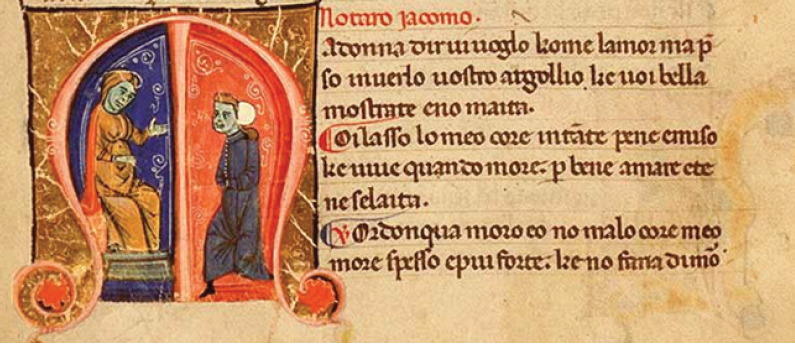 Notaro Jacomo.
MAdonna dir ui uoglo kome lamor ma p̄
so inuerlo uostro argollio ke uoi bella
mostrate eno maita.
Oi lasso lo meo core intāte pene emiso
ke uiue quando more. p bene amare ete
neselaita.
Or donqua moro eo no malo core meo
more spesso epiu forte. ke no faria dimō